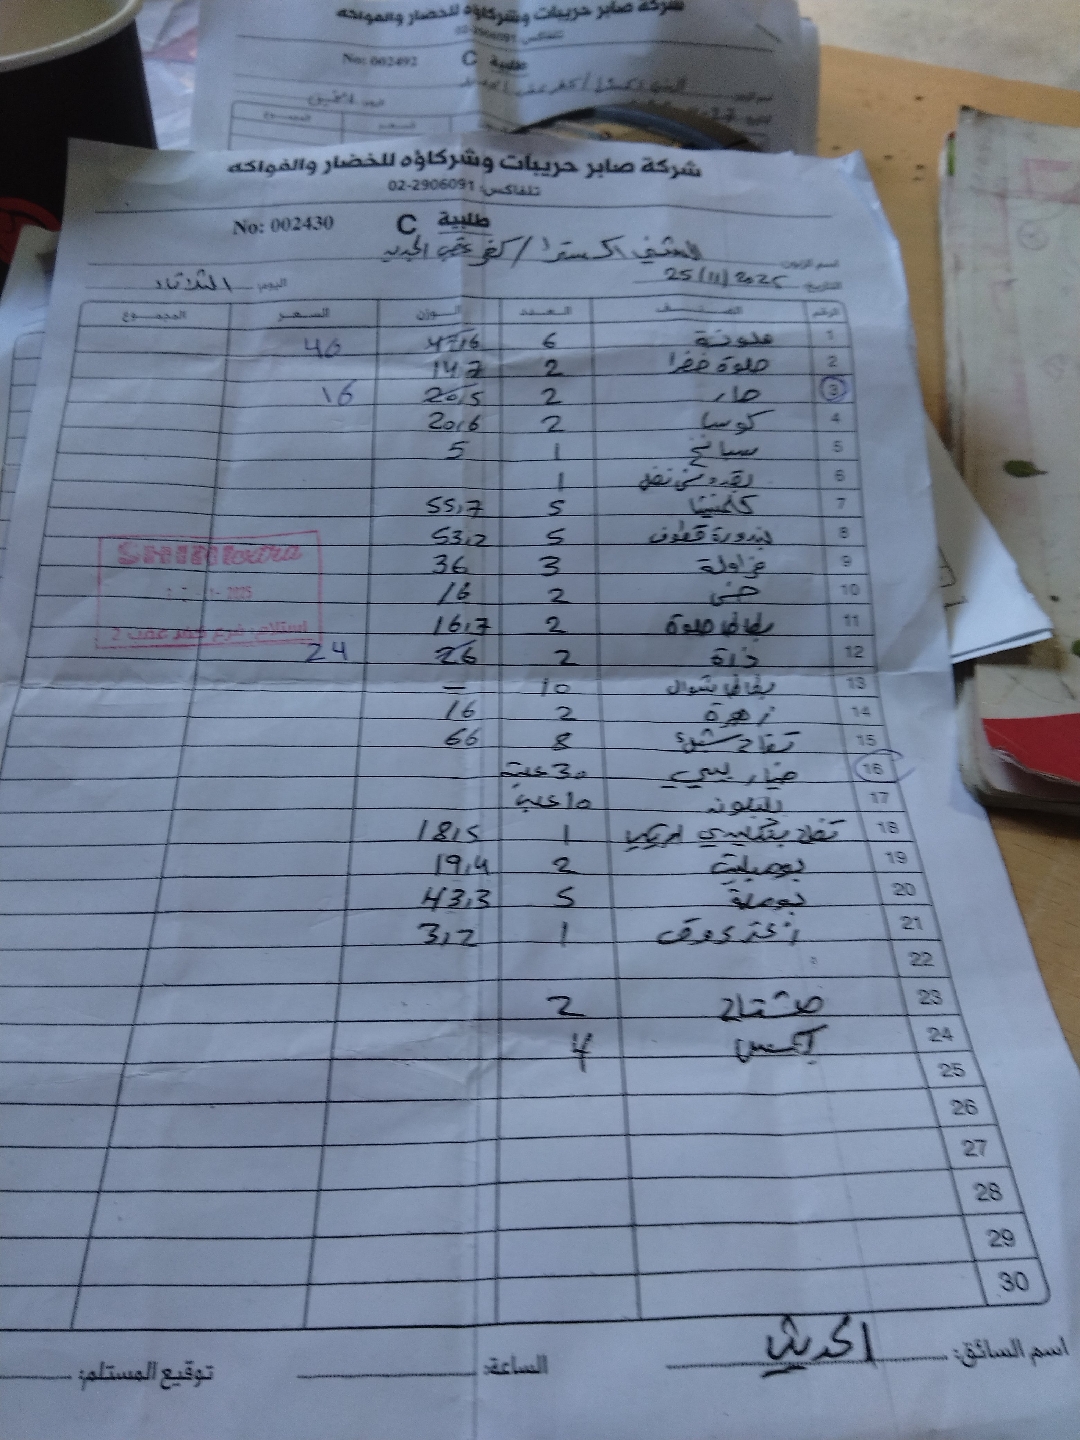 شركة صابر حريبات وشركاؤه للخضار والفواكه
تلفاكس: 02-2906091
No: 002492 C طلبية
شركة صابر حريبات وشركاؤه للخضار والفواكه
تلفاكس: 02-2906091
No: 002430 C طلبية
اسم الزبون: اكسترا / كفر عقب الجديد
التاريخ: 25/11/2025 اليوم: الثلاثاء
الرقم الصنف العدد الوزن السعر المجموع
1 ملونة 6 47,6 40
2 حلوة خضرا 2 14,7
3 حار 2 20,5 16
4 كوسا 2 20,6
5 سبانخ 1 5
6 1
7 كلمنتينا 5 55,7
8 بندورة قطوف 5 53,2
9 فراولة 3 36
10 خس 2 16
11 بطاطا حلوة 2 16,7
12 ذرة 2 26 24
13 بطاطا شوال 10 —
14 زهرة 2 16
15 تفاح 8 66
16 خيار بيبي 30 علبة
17 10 علبة
18 تفاح 1 18,5
19 بوميليت 2 19,4
20 بوملة 5 43,3
21 1 3,2
22
23 مشتاح 2
24 بكس 4
25
26
27
28
29
30
SHINI extra
2025
استلام فرع كفر عقب 2
اسم السائق: الساعة: توقيع المستلم: